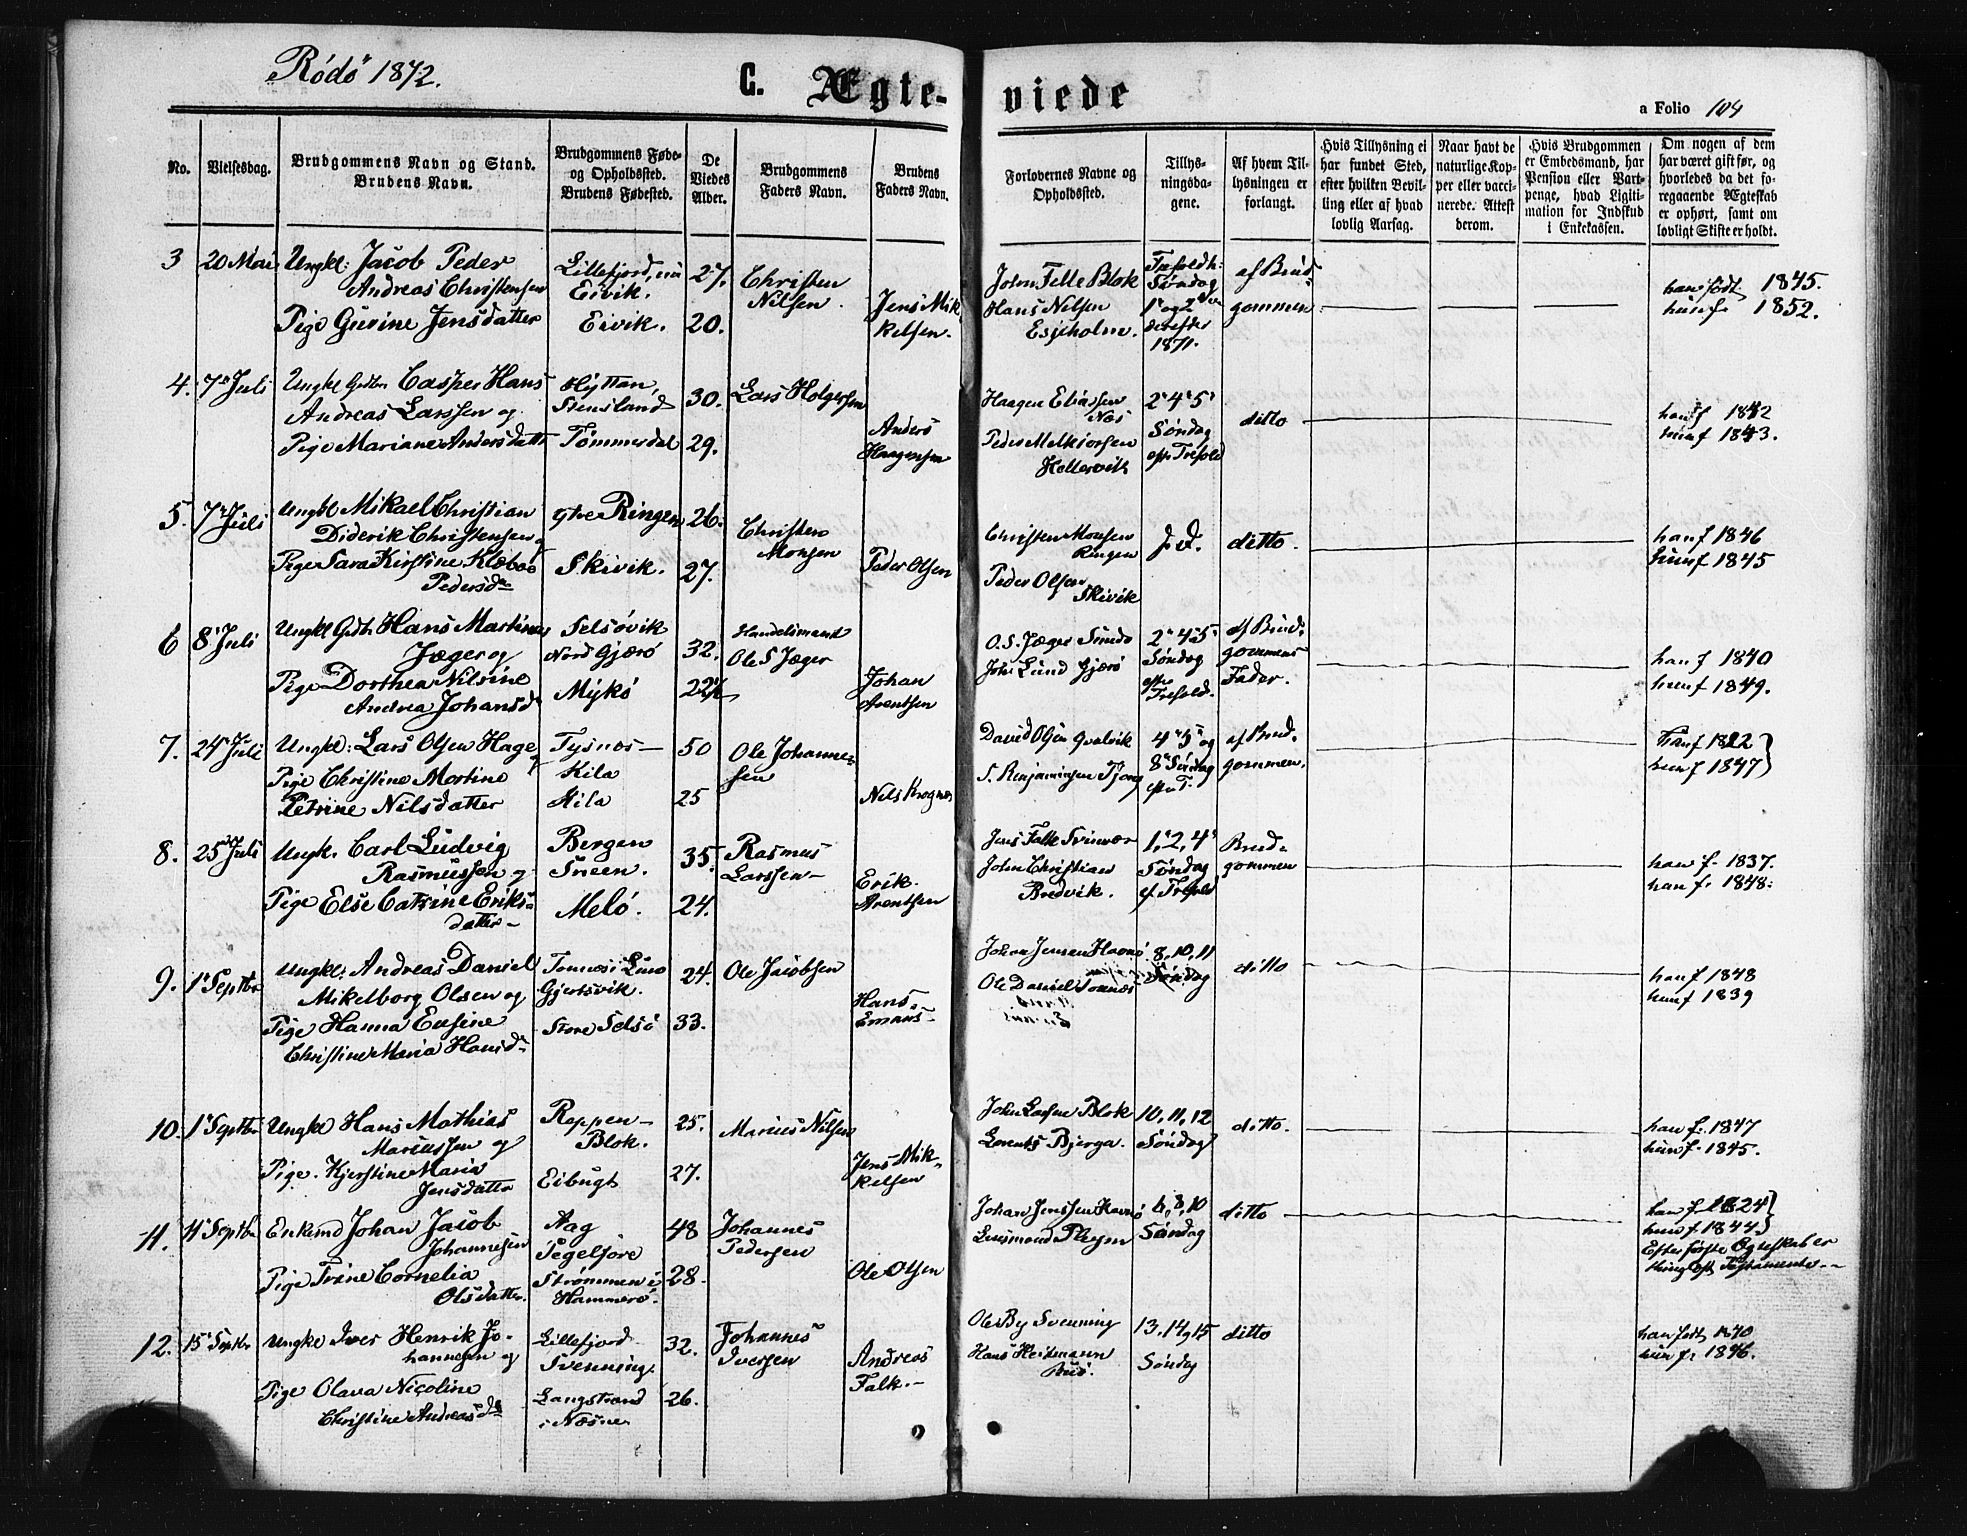 Rödö 1872.
C. Ægte-
viede
a Folio 104
No.
Vielsesdag.
Brudgommens Navn og Stand.
Brudens Navn.
Brudgommens Føde-
og Opholdssted.
Brudens Fødested.
De
Viedes
Alder.
Brudgommens
Faders Navn.
Brudens
Faders Navn.
Forlovernes Navne og
Opholdssted.
Tillys-
ningsda-
gene.
Af hvem Til-
lysningen er
forlangt.
Hvis Tillysning ei
har fundet Sted,
efter hvilken Bevil-
ling eller af hvad
lovlig Aarsag.
Naar havt de
naturlige Kop-
per eller vacci-
nerede. Attest
derom.
Hvis Brudgommen
er Embedsmand, har
Pension eller Vart-
penge, hvad Ligiti-
mation for Indskud
i Enkekassen.
Om nogen af dem
har været gift før, og
hvorledes da det fo-
regaaende Ægteskab
er ophørt, samt om
lovligt Skifte er holdt.
3
20 Mai
Ungkl: Jacob Peder
Andreas Christensen
Pige Gurine Jensdatter
Lillefjord, nu
Eivik.
Eivik.
27.
20.
Christen
Nilsen
Jens Mik-
kelsen.
John Felle Blok
Hans Nilsen
Esjeholm.
Søndag
1' og 2
derefter
1871.
af Brud-
gommen
han født 1845.
hun f. 1852.
4.
7' Juli
Ungkl Casper Hans
Andreas Larssen og
Pige Mariane Andersdatt
Hyttan,
Stensland
Tømmerdal
30.
29.
Lars Holgersen
Anders
Haagensen
Haagen Eliassen
Næs
Peder Melkiorsen
Koltervik
2' 4' 5'
Søndag
eftr Trefold
ditto
han f 1842
hun f 1843.
5.
7' Juli
Ungkl Mikael Christian
Diderik Christensen
Pige Sara Kirstine Klæboe
Pedersd
ytre Ringen
Skivik.
26.
27.
Christen
Monsen
Peder Olsen
Christen Monsen
Ringen
Peder Olsen
Skivik
ditto.
han f 1846
hun f 1845
6
8' Juli
Ungkl Hans Martinus
Jæger og
Pige Dorthea Nilsine
Andrea Johansd
Selsövik
Nord Gjærö
Mykö
32.
22
Handelsmand
Ole S Jæger
Johan
Arentsen
O. S. Jæger Sundo
Johs Lund Gjærö
2' 4' 5'
Søndag
eftr
Trefold.
af Brud-
gommens
Fader.
han f 1840
hun f 1849.
7.
24' Juli
Ungkl: Lars Olsen Hage
Pige Christine Martine
Petrine Nilsdatter
Tysnæs-
Kila
Kila
50
25
Ole Johanne-
sen
Nils Krognes
David Olsen Qvalvik
S. Benjaminsen Tjong
4' 5' og
8' Søndag
eftr T.
af Brud-
gommen.
han f 1822
hun f 1847
8.
25' Juli
Ungk. Carl Ludvig
Rasmussen og
Pige Else Catrine Eriks-
datter-
Bergen
Sneen.
Melö.
35.
24.
Rasmus
Larssen-
Erik
Arentsen
Jens Falk Svinvær
John Christian
Bredvik.
1', 2, 4'
Søndag
ef. Trefold
Brud-
gommen
han f. 1837.
han f. 1848.
9.
1' Septbr
Ungkl. Andreas Daniel
Mikelborg Olsen og
Pige Hanna Eusine
Christine Maria Hansd
Tonnæs i Lurö
Gjertsvik.
Store Selsö
24.
33.
Ole Jacobsen
Hans
Emans-
Johan Jensen Havnö
Ole Daniel Tonnæs
8, 10, 11
Søndag
ditto
han f 1848
hun f 1839
10.
1' Septbr
Ungkl Hans Mathias
Mariussen og
Pige. Kjerstine Maria
Jensdatter
Reppen-
Blok.
Eibugt
25.
27.
Marius Nilsen
Jens Mik-
kelsen
John Larsen Blok
Lorents Bjerga.
10, 11, 12
Søndag
ditto.
han f. 1847
hun f. 1845.
11.
4' Septbr
Enkemd Johan Jacob
Johannesen
Pige Trine Cornelia
Olsdatter.
Aag
Tegelfjore
Strömmen i
Hammerö.
48
28.
Johannes
Pedersen
Ole Olsen
Johan Jenssen Havnö
6, 8, 10
Søndag
ditto
han f. 1824
hun f. 1844
Efter første Ægteskab er
12.
15' Septbr
Ungkl Iver Henrik Jo-
hannesen og
Pige Olava Nicoline
Christine Andreasd
Lillefjord
Svenning.
Langstrand
i Næsne
32.
26.
Johannes
Iversen
Andreas
Falk.-
Ole By Svenning
Hans Heitmann
13. 14 og 15
Søndag
ditto
han født 1840
hun f. 1846.